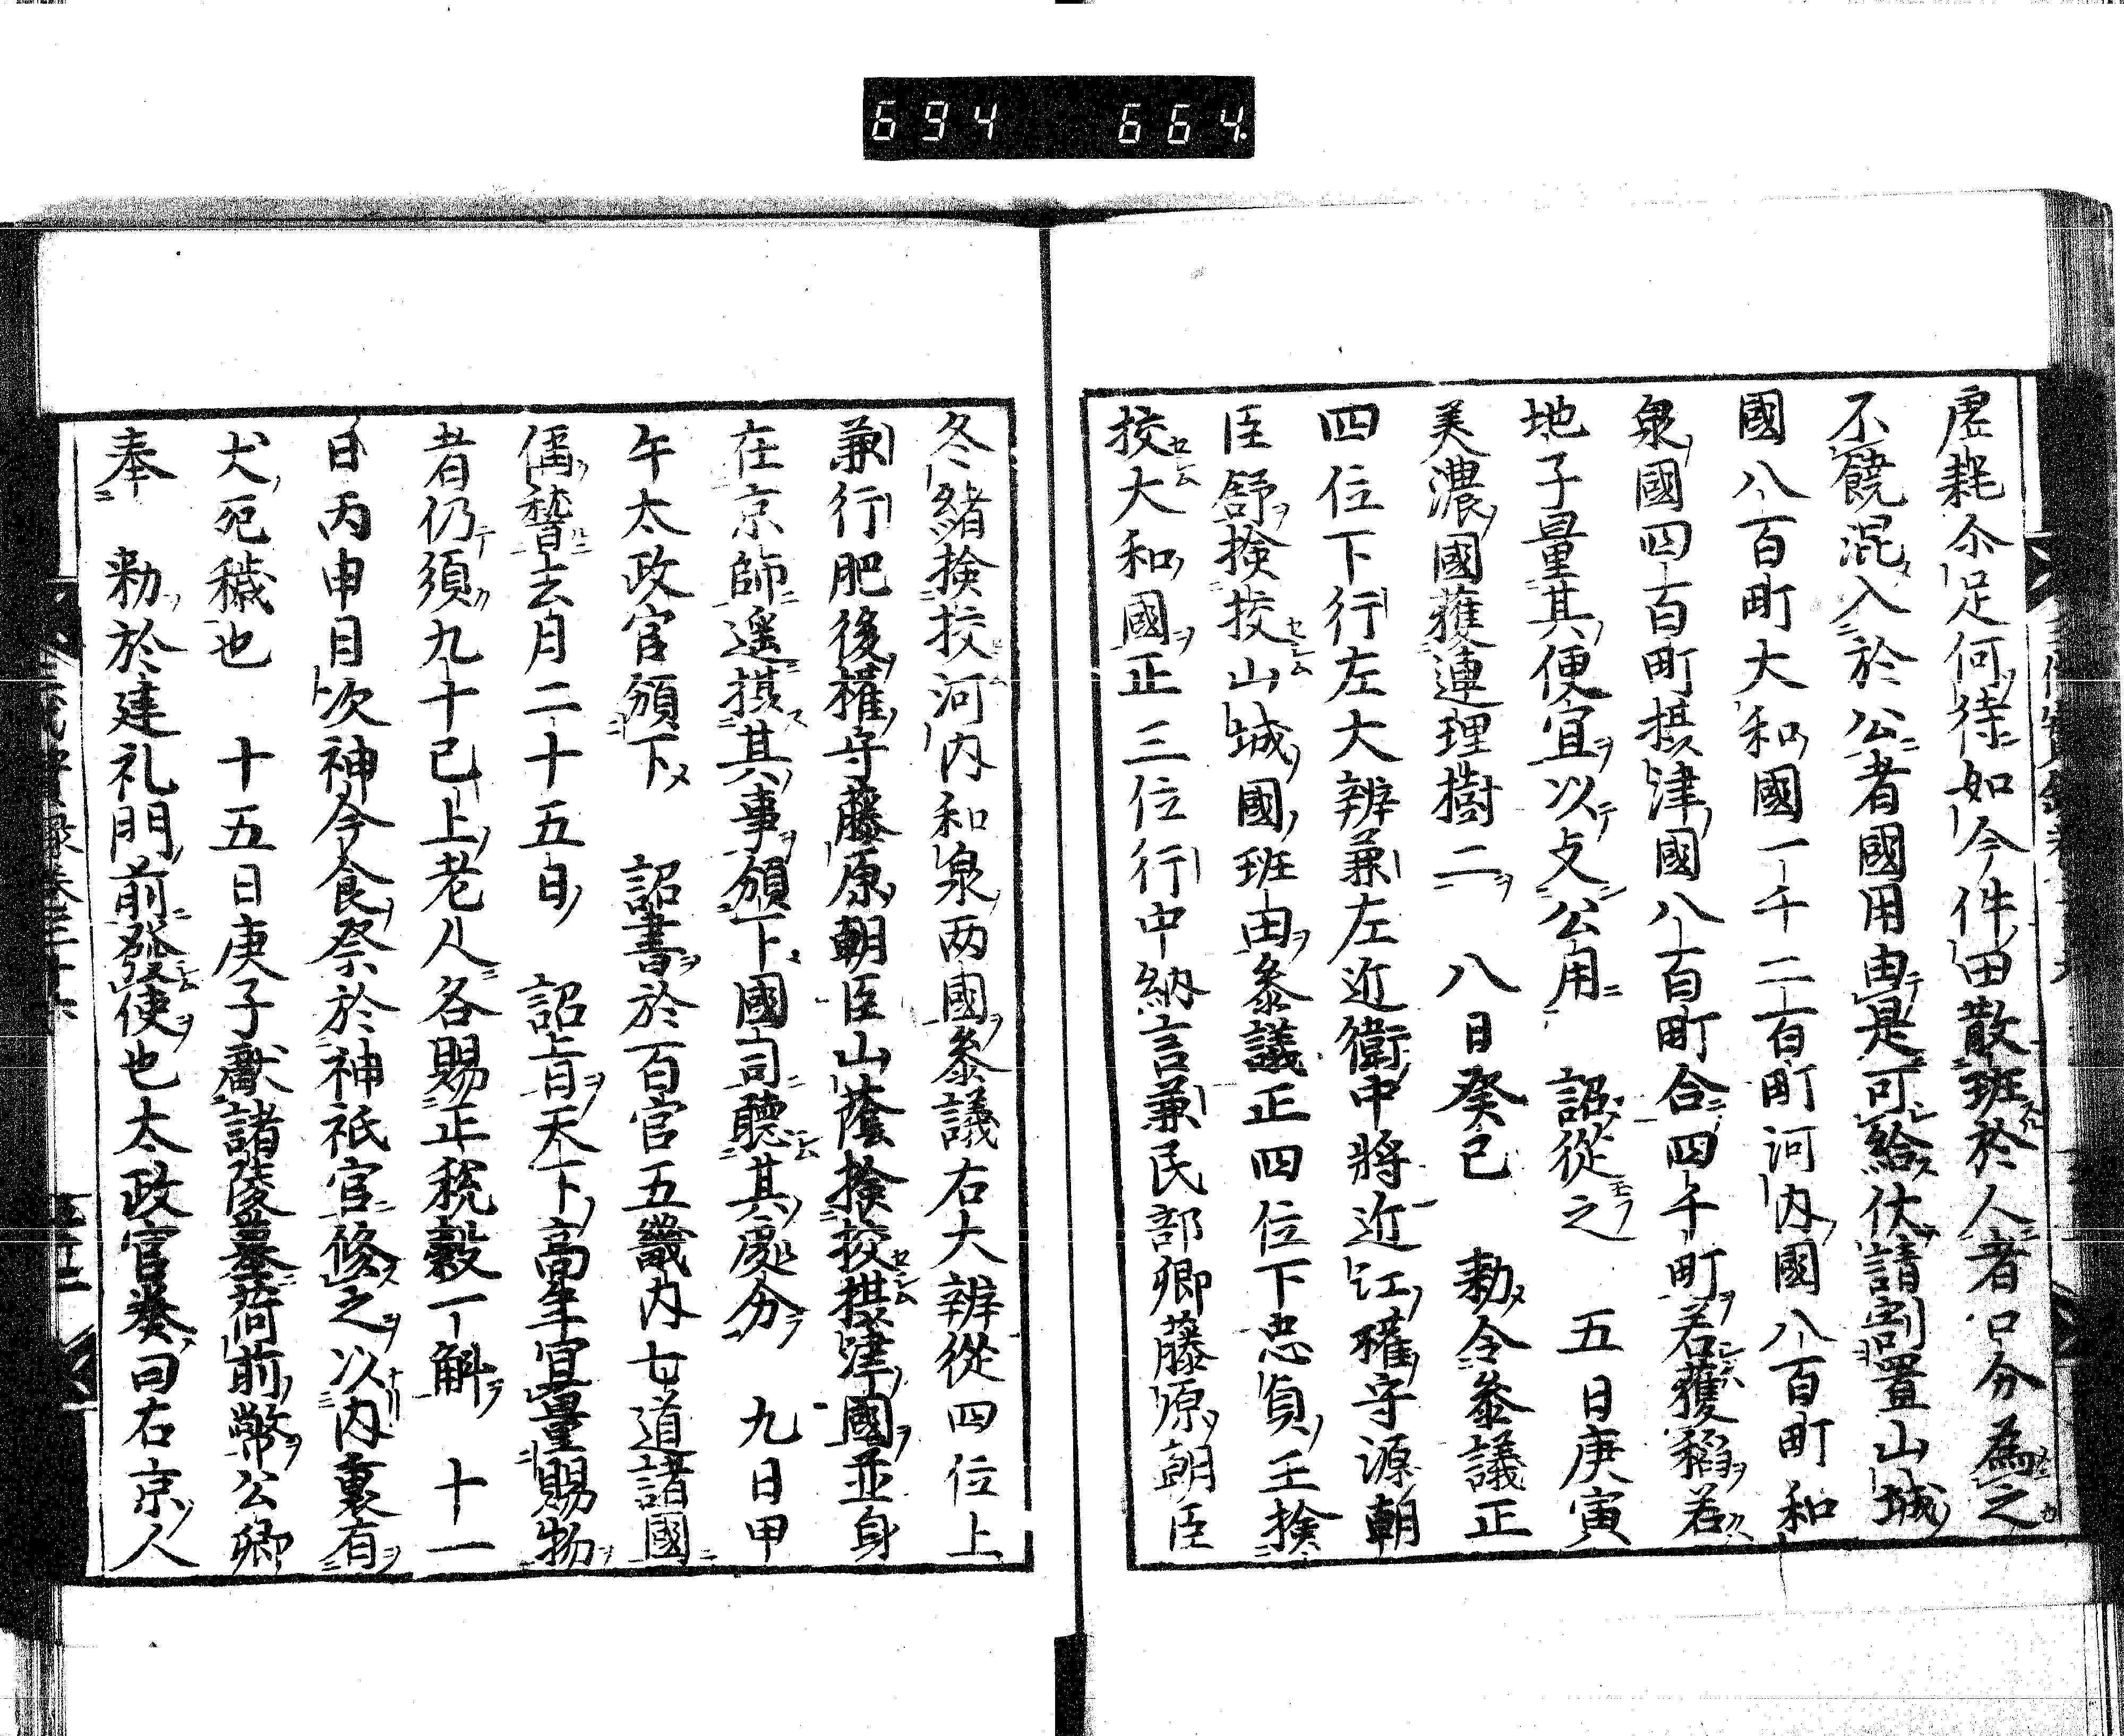 694 664
虚耗尓足何待如今件田散班於人者口分為之
不饒混入於公者國用由是可給伏請割置山城
國八百町大和國一千二百町河内國八百町和
泉國四百町摂津國八百町合四千町若獲稻若
地子量其便宜以攴公用 詔從之 五日庚寅
美濃國獲連理樹二 八日癸巳 勅令參議正
四位下行左大辨兼左近衛中將近江權守源朝
臣舒撿挍山城國班田參議正四位下忠貞王撿
挍大和國正三位行中納言兼民部卿藤原朝臣
冬緒撿挍河内和泉两國參議右大辨從四位上
兼行肥後權守藤原朝臣山蔭撿挍摂津國並身
在京師遥摂其事頒下國司聽其處分 九日甲
午太政官頒下 詔書於百官五畿内七道諸國
偁稽去月二十五日 詔旨天下高年冝量賜物
者仍須九十已上老人各賜正税穀一斛 十一
日丙申月次神今食祭於神祇官修之以内裏有
犬死穢也 十五日庚子獻諸陵墓荷前幣公卿
奉 勅於建礼門前發使也太政官奏曰右京人